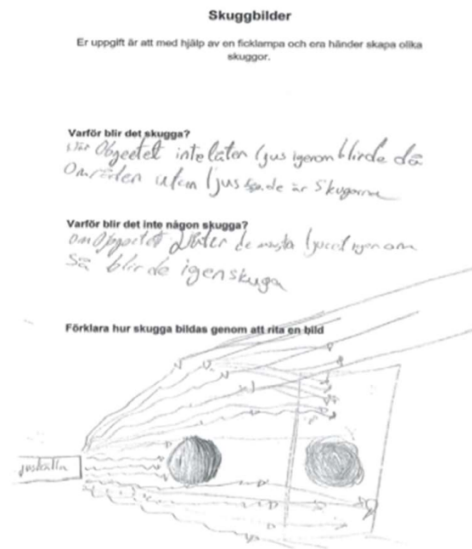 Skuggbilder
Er uppgift är att med hjälp av en ficklampa och era händer skapa olika
skuggor.
Varför blir det skugga?
När Obgectet inte låter ljus igenom blir de då
Områden utan ljus de är Skugorna
Varför blir det inte någon skugga?
om Obgectet låter de mesta ljuset igenom
Så blir de igen skuga
Förklara hur skugga bildas genom att rita en bild
ljuskälla